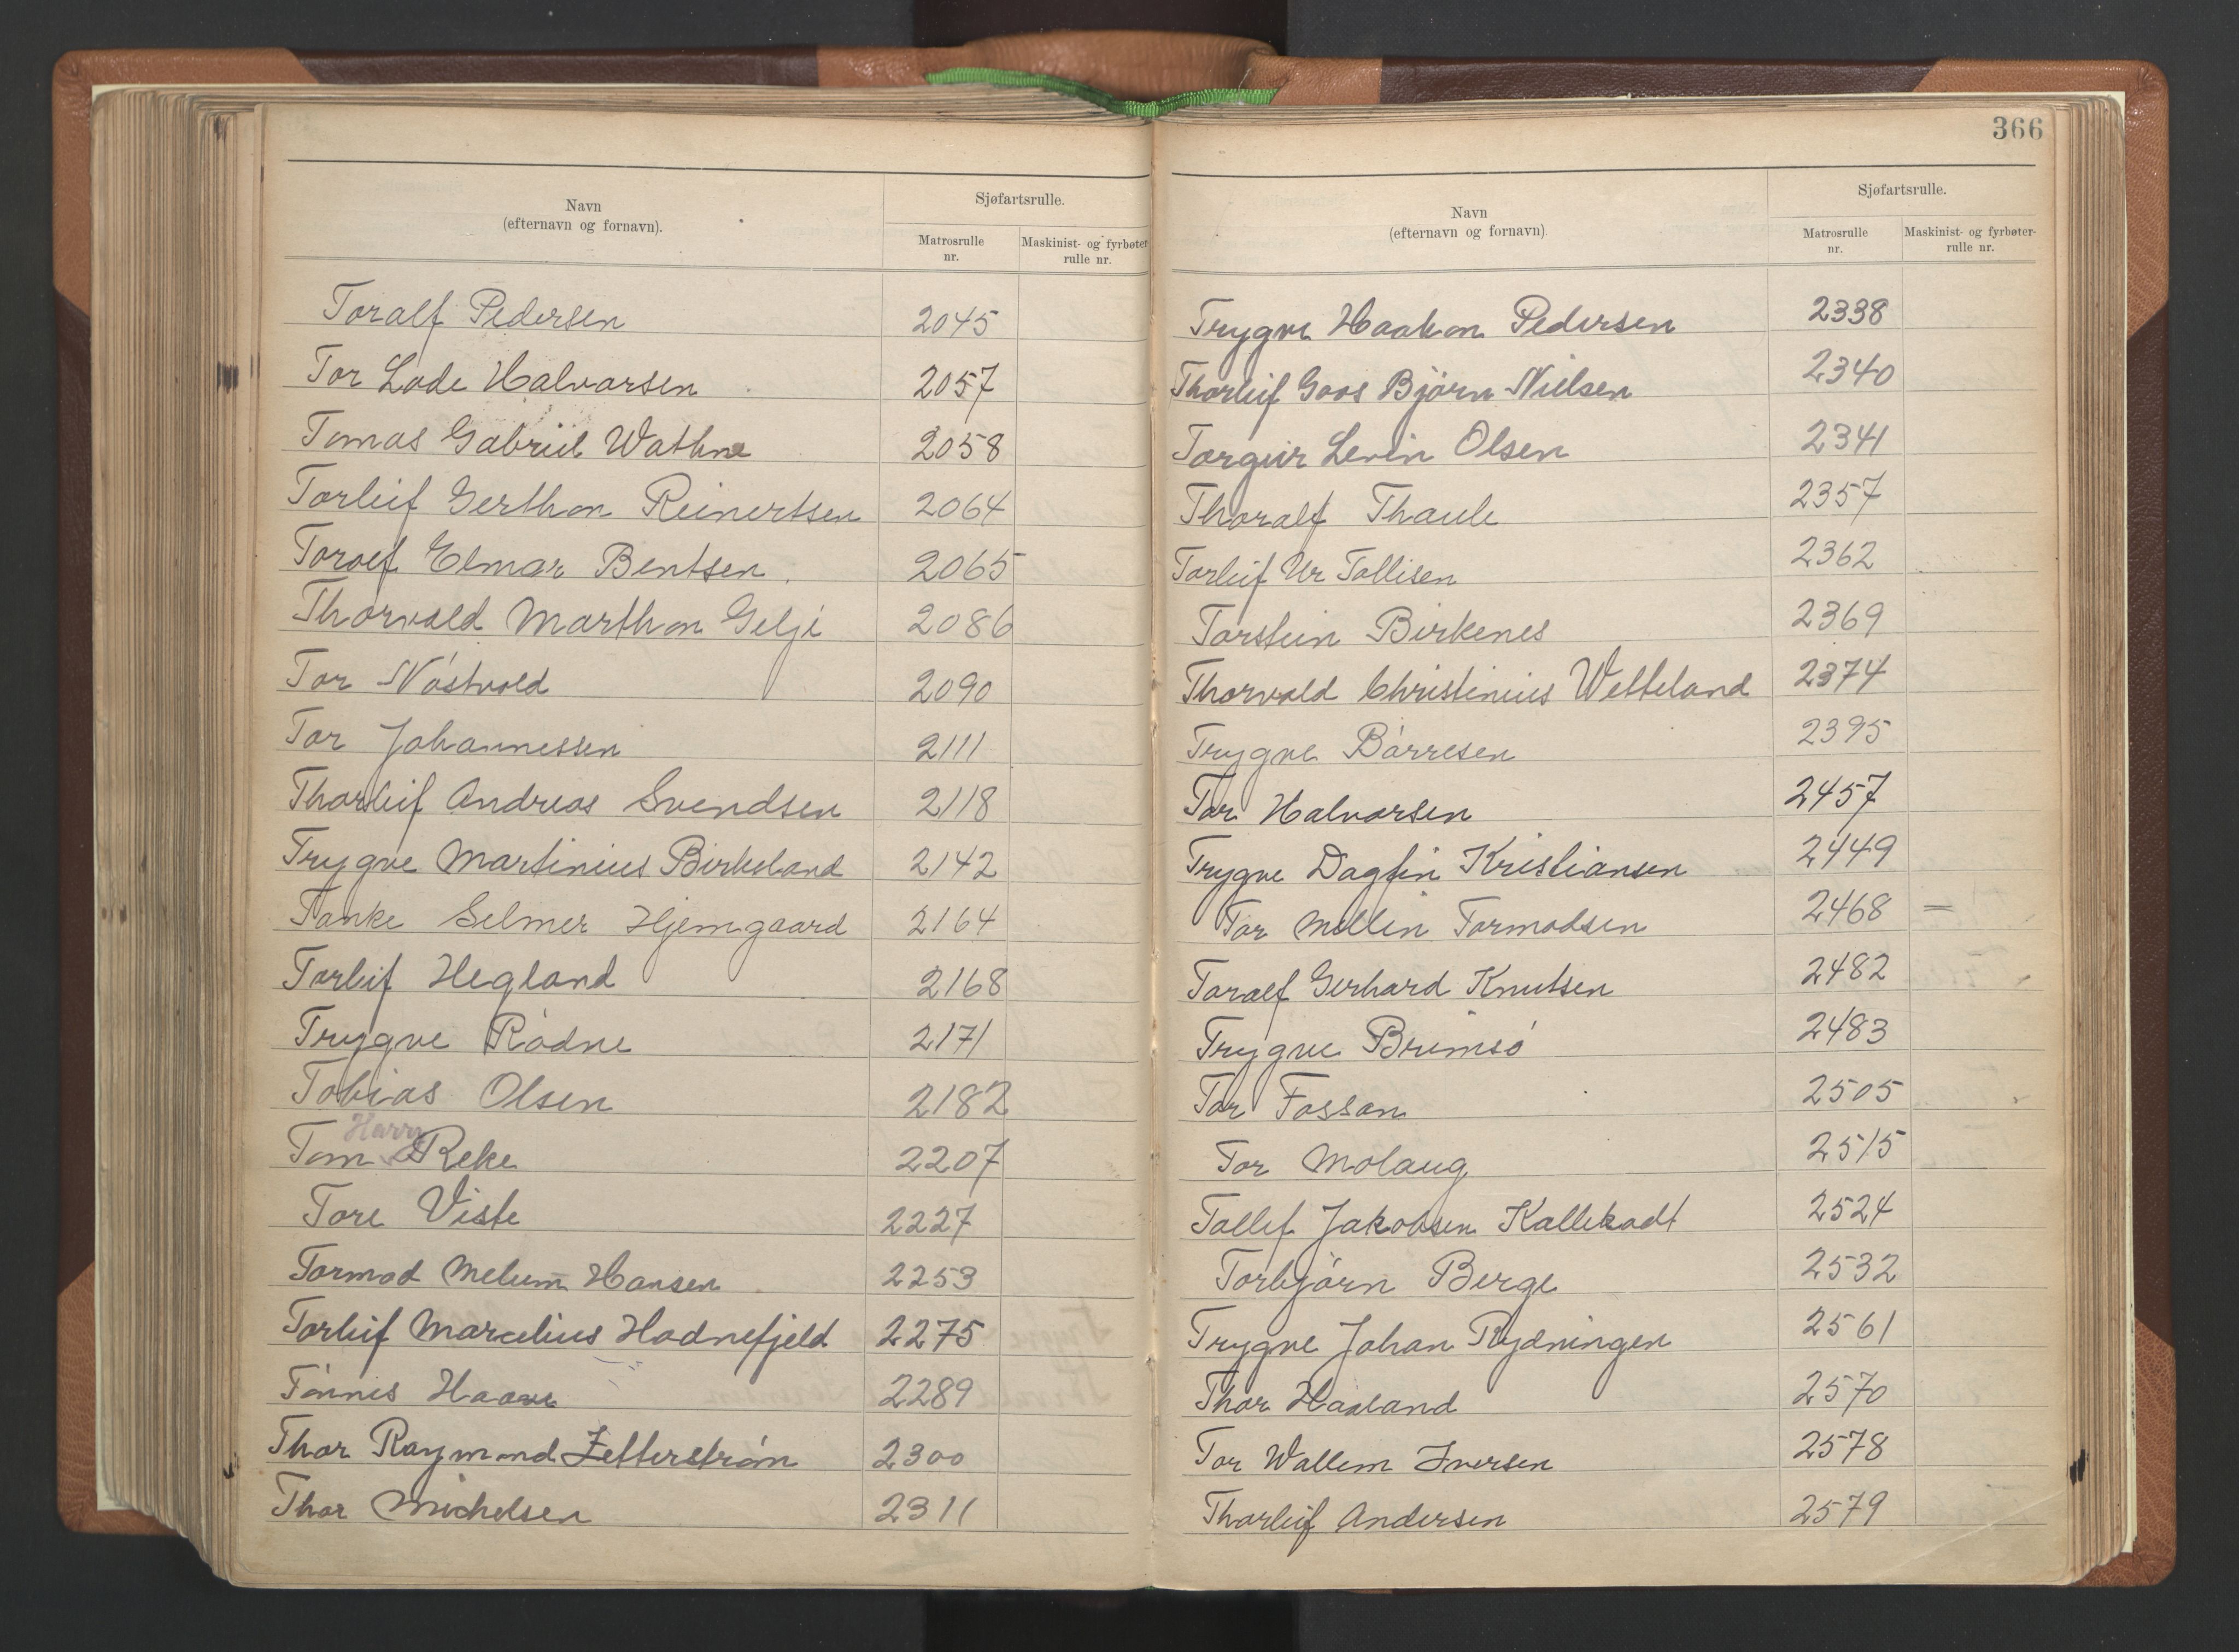 366
Navn
(efternavn og fornavn).
Sjøfartsrulle.
Matrosrulle nr.
Maskinist- og fyrbøter rulle nr.
Toralf Pedersen 2045
Tor Lode Halvorsen 2057
Tomas Gabriel Wathne 2058
Torleif Gerthon Reinertsen 2064
Toralf Elmar Bentsen. 2065
Thorvald Marthon Gilje 2086
Tor Nóstvold 2090
Tor Johannessen 2111
Thorleif Andreas Svendsen 2118
Trygve Martinius Birkeland 2142
Tanke Selmer Hjemgaard 2164
Torleif Hegland 2168
Trygve Ródne 2171
Tobias Olsen 2182
Harry
Tom Reke 2207
Tore Viste 2227
Tormod Melum Hansen 2253
Torleif Marcelius Hodnefjeld 2275
Tónnes Haave 2289
Thor Raymond Zetterstróm 2300
Thor Michelsen 2311
Navn
(efternavn og fornavn)
Sjøfartsrulle.
Matrosrulle nr.
Maskinist- og fyrbøter-rulle nr.
Trygve Haakon Pedersen 2338
Thorleif Goos Bjórn Nielsen 2340
Torgeir Levin Olsen 2341
Thoralf Thaule 2357
Torleif Ur Tollisen 2362
Torstein Birkenes 2369
Thorvald Christinius Wetteland 2374
Trygve Bórresen 2395
Tor Halvorsen 2457
Trygve Dagfin Kristiansen 2449
Tor Mellin Tormodsen 2468 =
Toralf Gerhard Knutsen 2482
Trygve Brimsó 2483
Tor Fosson 2505
Tor Molaug 2515
Tollef Jakobsen Kallekodt 2524
Torbjórn Berge 2532
Trygve Johan Rydningen 2561
Thor Haaland 2570
Tor Wallem Iversen 2578
Thorleif Andersen 2579